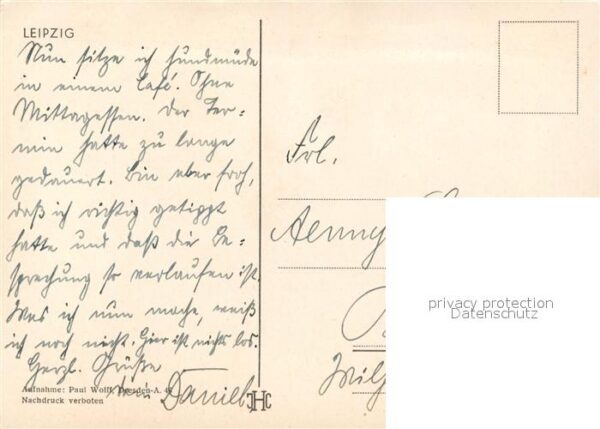 LEIPZIG
Nun sitze ich hundmüde
in einem Café. Ohne
Mittagessen. Der Ter=
min hatte zu lange
gedauert. Bin aber froh,
daß ich richtig getippt
hatte und daß die Be=
sprechung so verlaufen ist.
Was ich nun mache, weiß
ich noch nicht. Hier ist nichts los.
Herzl. Grüße
Daniel
Aufnahme: Paul Wolff, Dresden-A.
Nachdruck verboten
JHC
Frl.
Aenny
privacy protection
Datenschutz